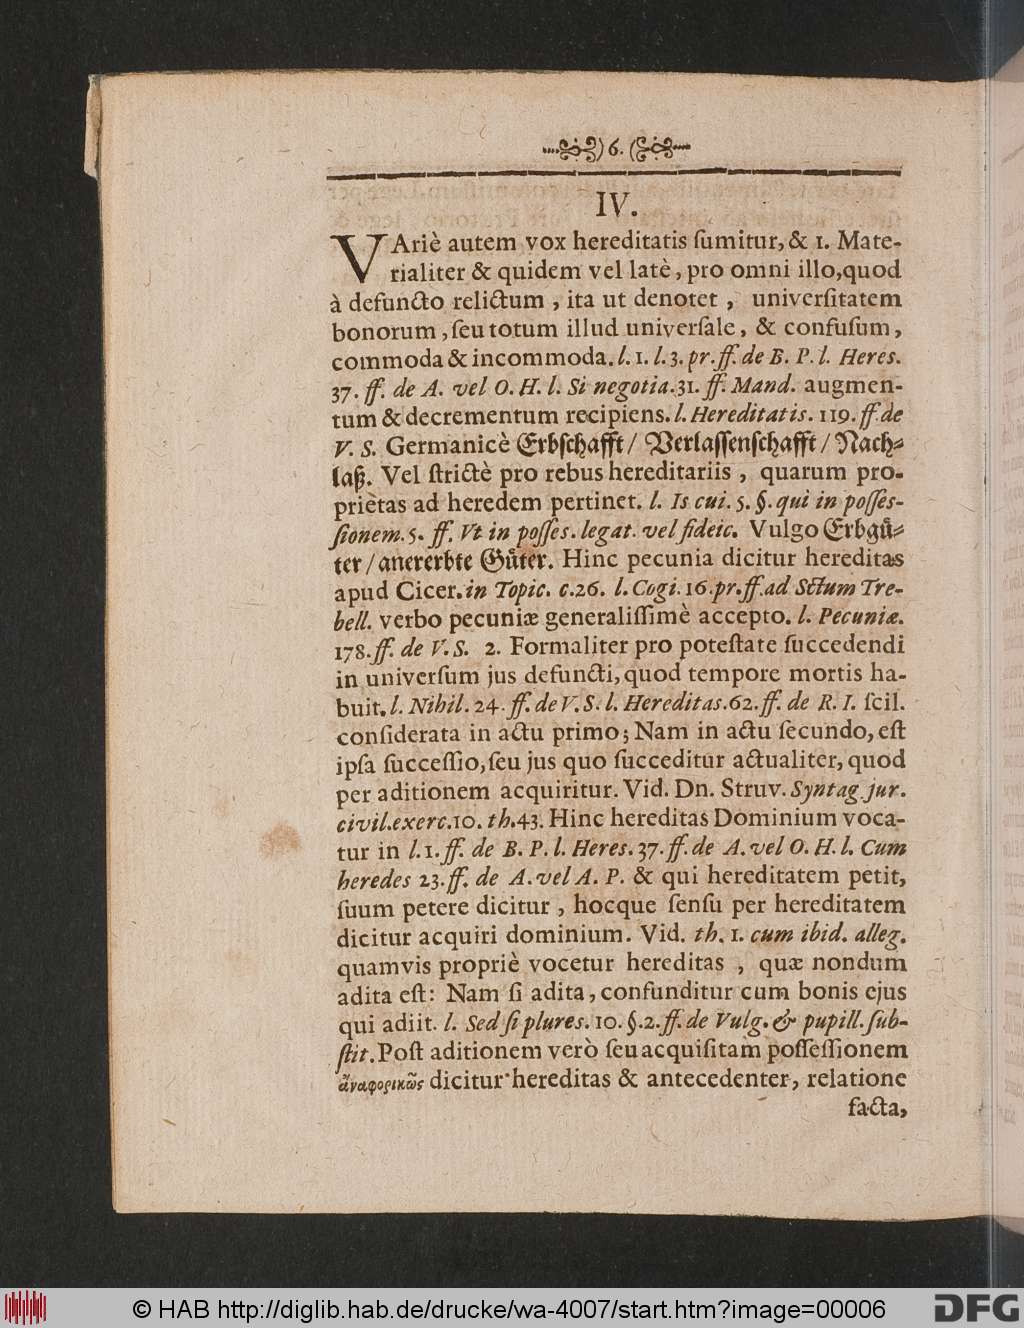 )6.(
IV.
VAriè autem vox hereditatis ſumitur, & 1. Mate-
rialiter & quidem vel latè, pro omni illo, quod
à defuncto relictum, ita ut denotet, univerſitatem
bonorum, ſeu totum illud univerſale, & confuſum,
commoda & incommoda. l. 1. l. 3. pr. ff. de B. P. l. Heres.
37. ff. de A. vel O. H. l. Si negotia. 31. ff. Mand. augmen-
tum & decrementum recipiens. l. Hereditatis. 119. ff. de
V. S. Germanicè Erbſchafft / Verlaſſenſchafft / Nach-
laß. Vel ſtrictè pro rebus hereditariis, quarum pro-
prietas ad heredem pertinet. l. Is cui. 5. §. qui in poſſeſ-
ſionem. 5. ff. Vt in poſſes. legat. vel fideic. Vulgo Erbguͤ-
ter / anererbte Guͤter. Hinc pecunia dicitur hereditas
apud Cicer. in Topic. c. 26. l. Cogi. 16. pr. ff. ad Sctum Tre-
bell. verbo pecuniæ generaliſſimè accepto. l. Pecuniæ.
178. ff. de V. S. 2. Formaliter pro poteſtate ſuccedendi
in univerſum jus defuncti, quod tempore mortis ha-
buit. l. Nihil. 24. ff. de V. S. l. Hereditas. 62. ff. de R. I. ſcil.
conſiderata in actu primo; Nam in actu ſecundo, eſt
ipſa ſucceſſio, ſeu jus quo ſucceditur actualiter, quod
per aditionem acquiritur. Vid. Dn. Struv. Syntag. jur.
civil. exerc. 10. th. 43. Hinc hereditas Dominium voca-
tur in l. 1. ff. de B. P. l. Heres. 37. ff. de A. vel O. H. l. Cum
heredes 23. ff. de A. vel A. P. & qui hereditatem petit,
ſuum petere dicitur, hocque ſenſu per hereditatem
dicitur acquiri dominium. Vid. th. 1. cum ibid. alleg.
quamvis propriè vocetur hereditas, quæ nondum
adita eſt: Nam ſi adita, confunditur cum bonis ejus
qui adiit. l. Sed ſi plures. 10. §. 2. ff. de Vulg. & pupill. ſub-
ſtit. Poſt aditionem verò ſeu acquiſitam poſſeſſionem
ἀναφορικῶς dicitur hereditas & antecedenter, relatione
facta,
© HAB http://diglib.hab.de/drucke/wa-4007/start.htm?image=00006
DFG